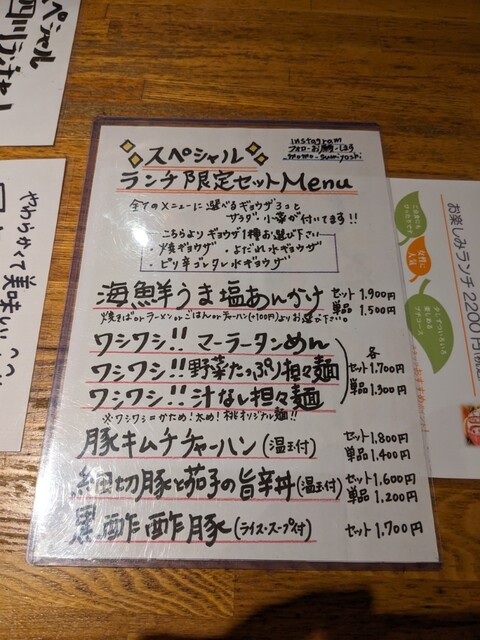 スペシャル
ランチ限定セットMenu
instagram
フォローお願いします
momo-sumiyoshi
全てのメニューに選べるギョウザ3コと
サラダ・小菜が付いてます!!
こちらよりギョウザ1種お選び下さい
・焼ギョウザ ・よだれ水ギョウザ
・ピリ辛ゴマタレ水ギョウザ
海鮮うま塩あんかけ セット 1.900円
単品 1.500円
焼そばorラーメンorごはんorチャーハン(+100円)よりお選び下さい。
ワシワシ!! マーラータンめん
ワシワシ!! 野菜たっぷり担々麺
ワシワシ!! 汁なし担々麺
各
セット1.700円
単品1.300円
※ワシワシ=かため!太め!桃オリジナル麺!!
豚キムチチャーハン(温玉付) セット1.800円
単品1.400円
細切豚と茄子の旨辛丼(温玉付) セット1.600円
単品1.200円
黒酢酢豚(ライス・スープ付) セット1.700円
やわらかくて美味しい
お楽しみランチ2200円